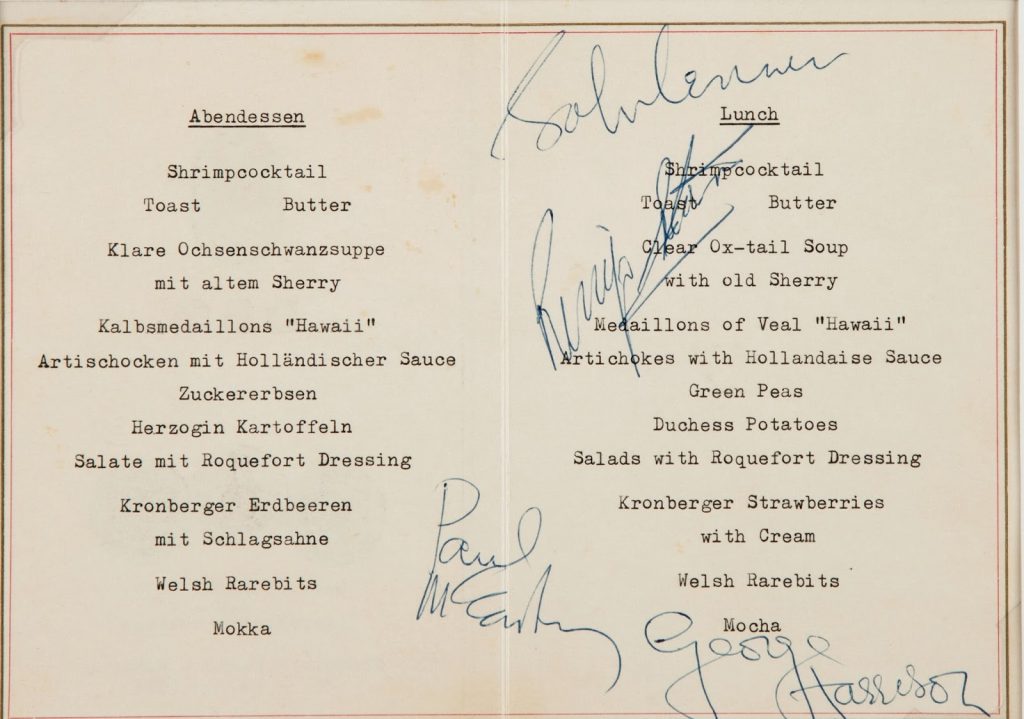 Abendessen
Shrimpcocktail
Toast Butter
Klare Ochsenschwanzsuppe
mit altem Sherry
Kalbsmedaillons "Hawaii"
Artischocken mit Holländischer Sauce
Zuckererbsen
Herzogin Kartoffeln
Salate mit Roquefort Dressing
Kronberger Erdbeeren
mit Schlagsahne
Welsh Rarebits
Mokka
John Lennon
Lunch
Shrimpcocktail
Toast Butter
Ringo Starr
Clear Ox-tail Soup
with old Sherry
Medaillons of Veal "Hawaii"
Artichokes with Hollandaise Sauce
Green Peas
Duchess Potatoes
Salads with Roquefort Dressing
Kronberger Strawberries
with Cream
Welsh Rarebits
Mocha
Paul
McCartney
George
Harrison